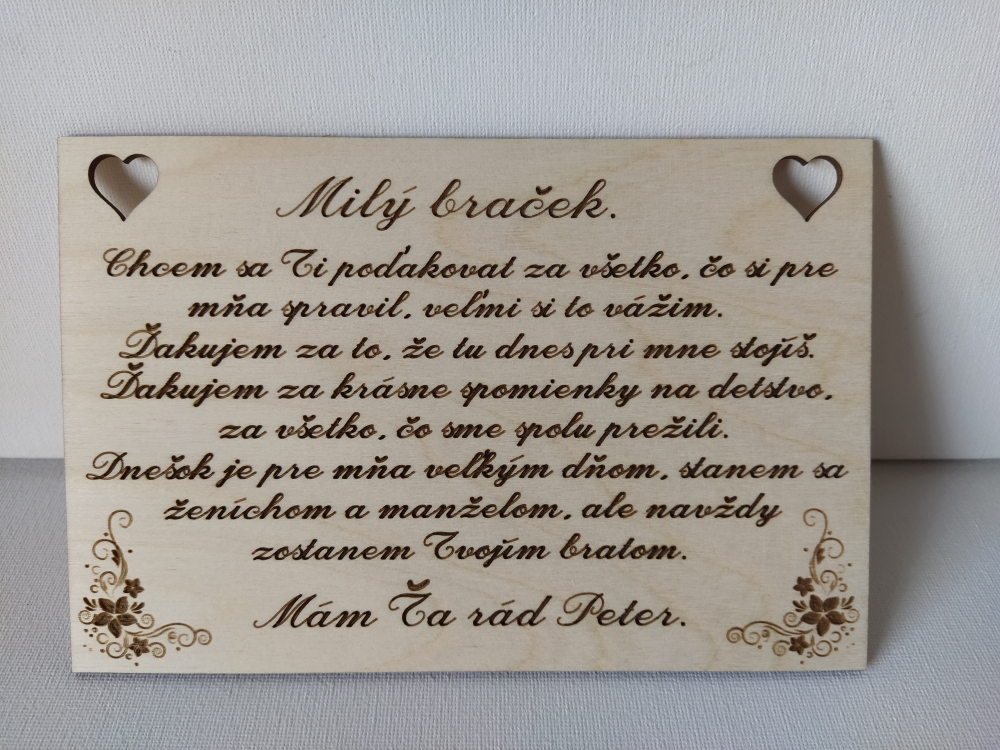 Milý braček.
Chcem sa Ti poďakovat za všetko, čo si pre
mňa spravil, veľmi si to vážim.
Ďakujem za to, že tu dnes pri mne stojíš.
Ďakujem za krásne spomienky na detstvo,
za všetko, čo sme spolu prežili.
Dnešok je pre mňa veľkým dňom, stanem sa
ženíchom a manželom, ale navždy
zostanem Tvojím bratom.
Mám Ťa rád Peter.